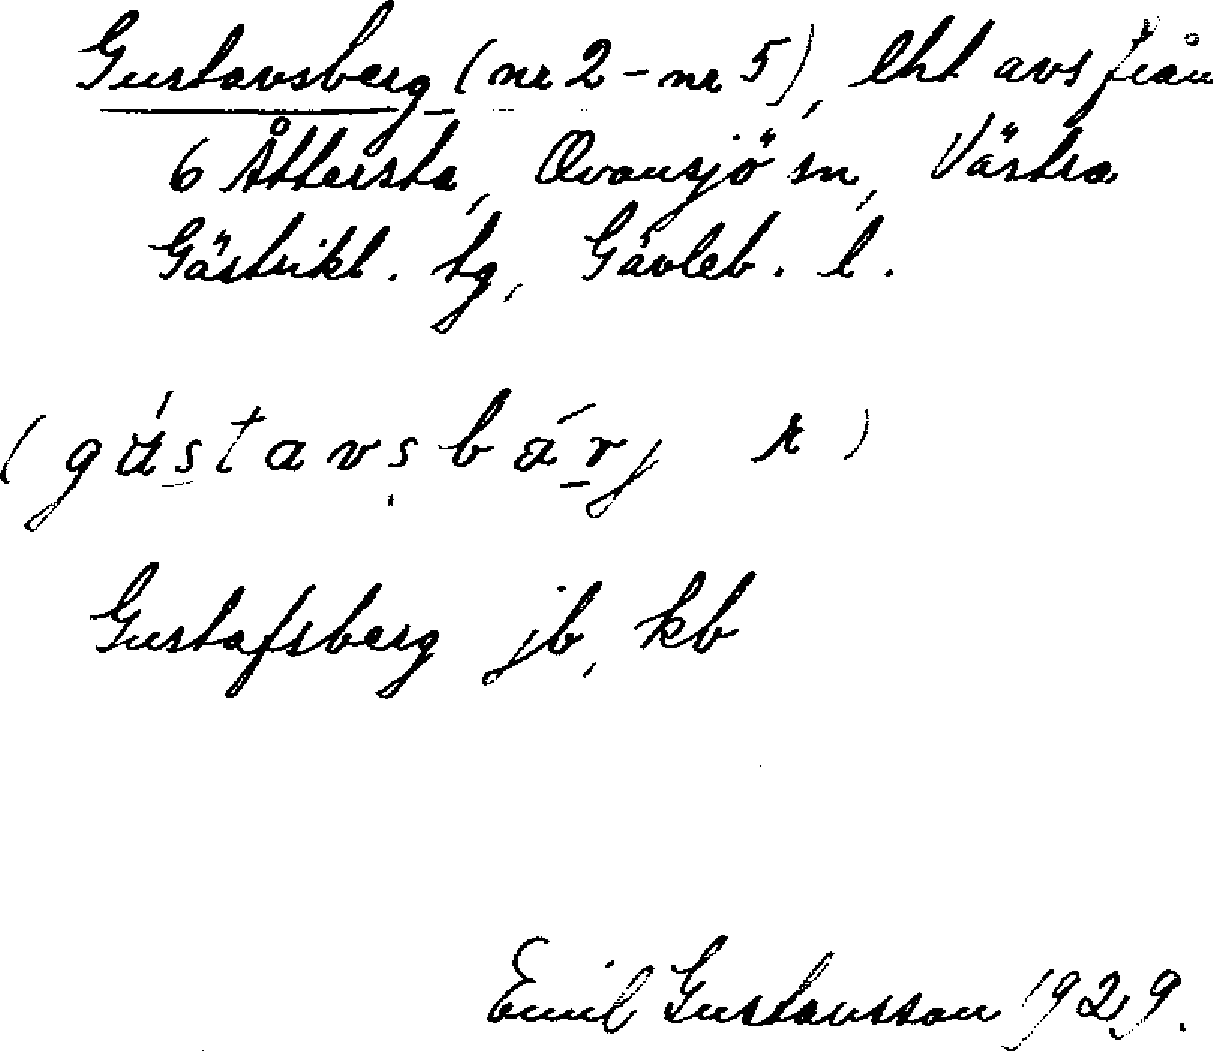 Gustavsberg (nr 2 - nr 5), lht avs från
6 Åttersta, Ovansjö sn, Västra
Gästrikl. tg, Gävleb. l.
(gústavsbárj r)
Gustafsberg jb, kb
Emil Gustavsson 1929.